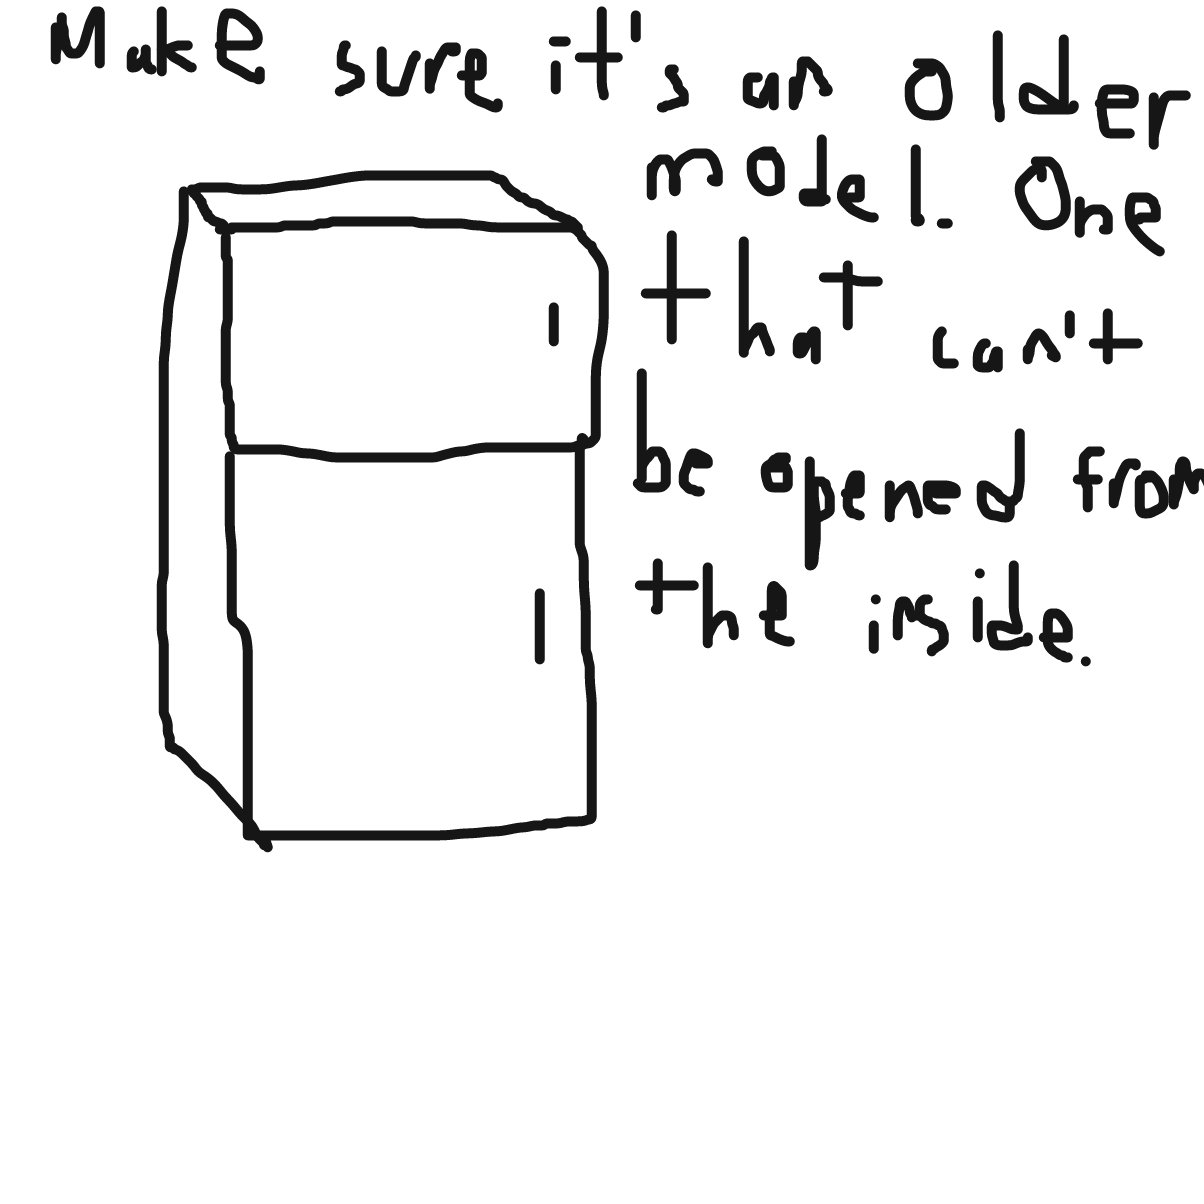 Make sure it's an older
model. One
that can't
be opened from
the inside.